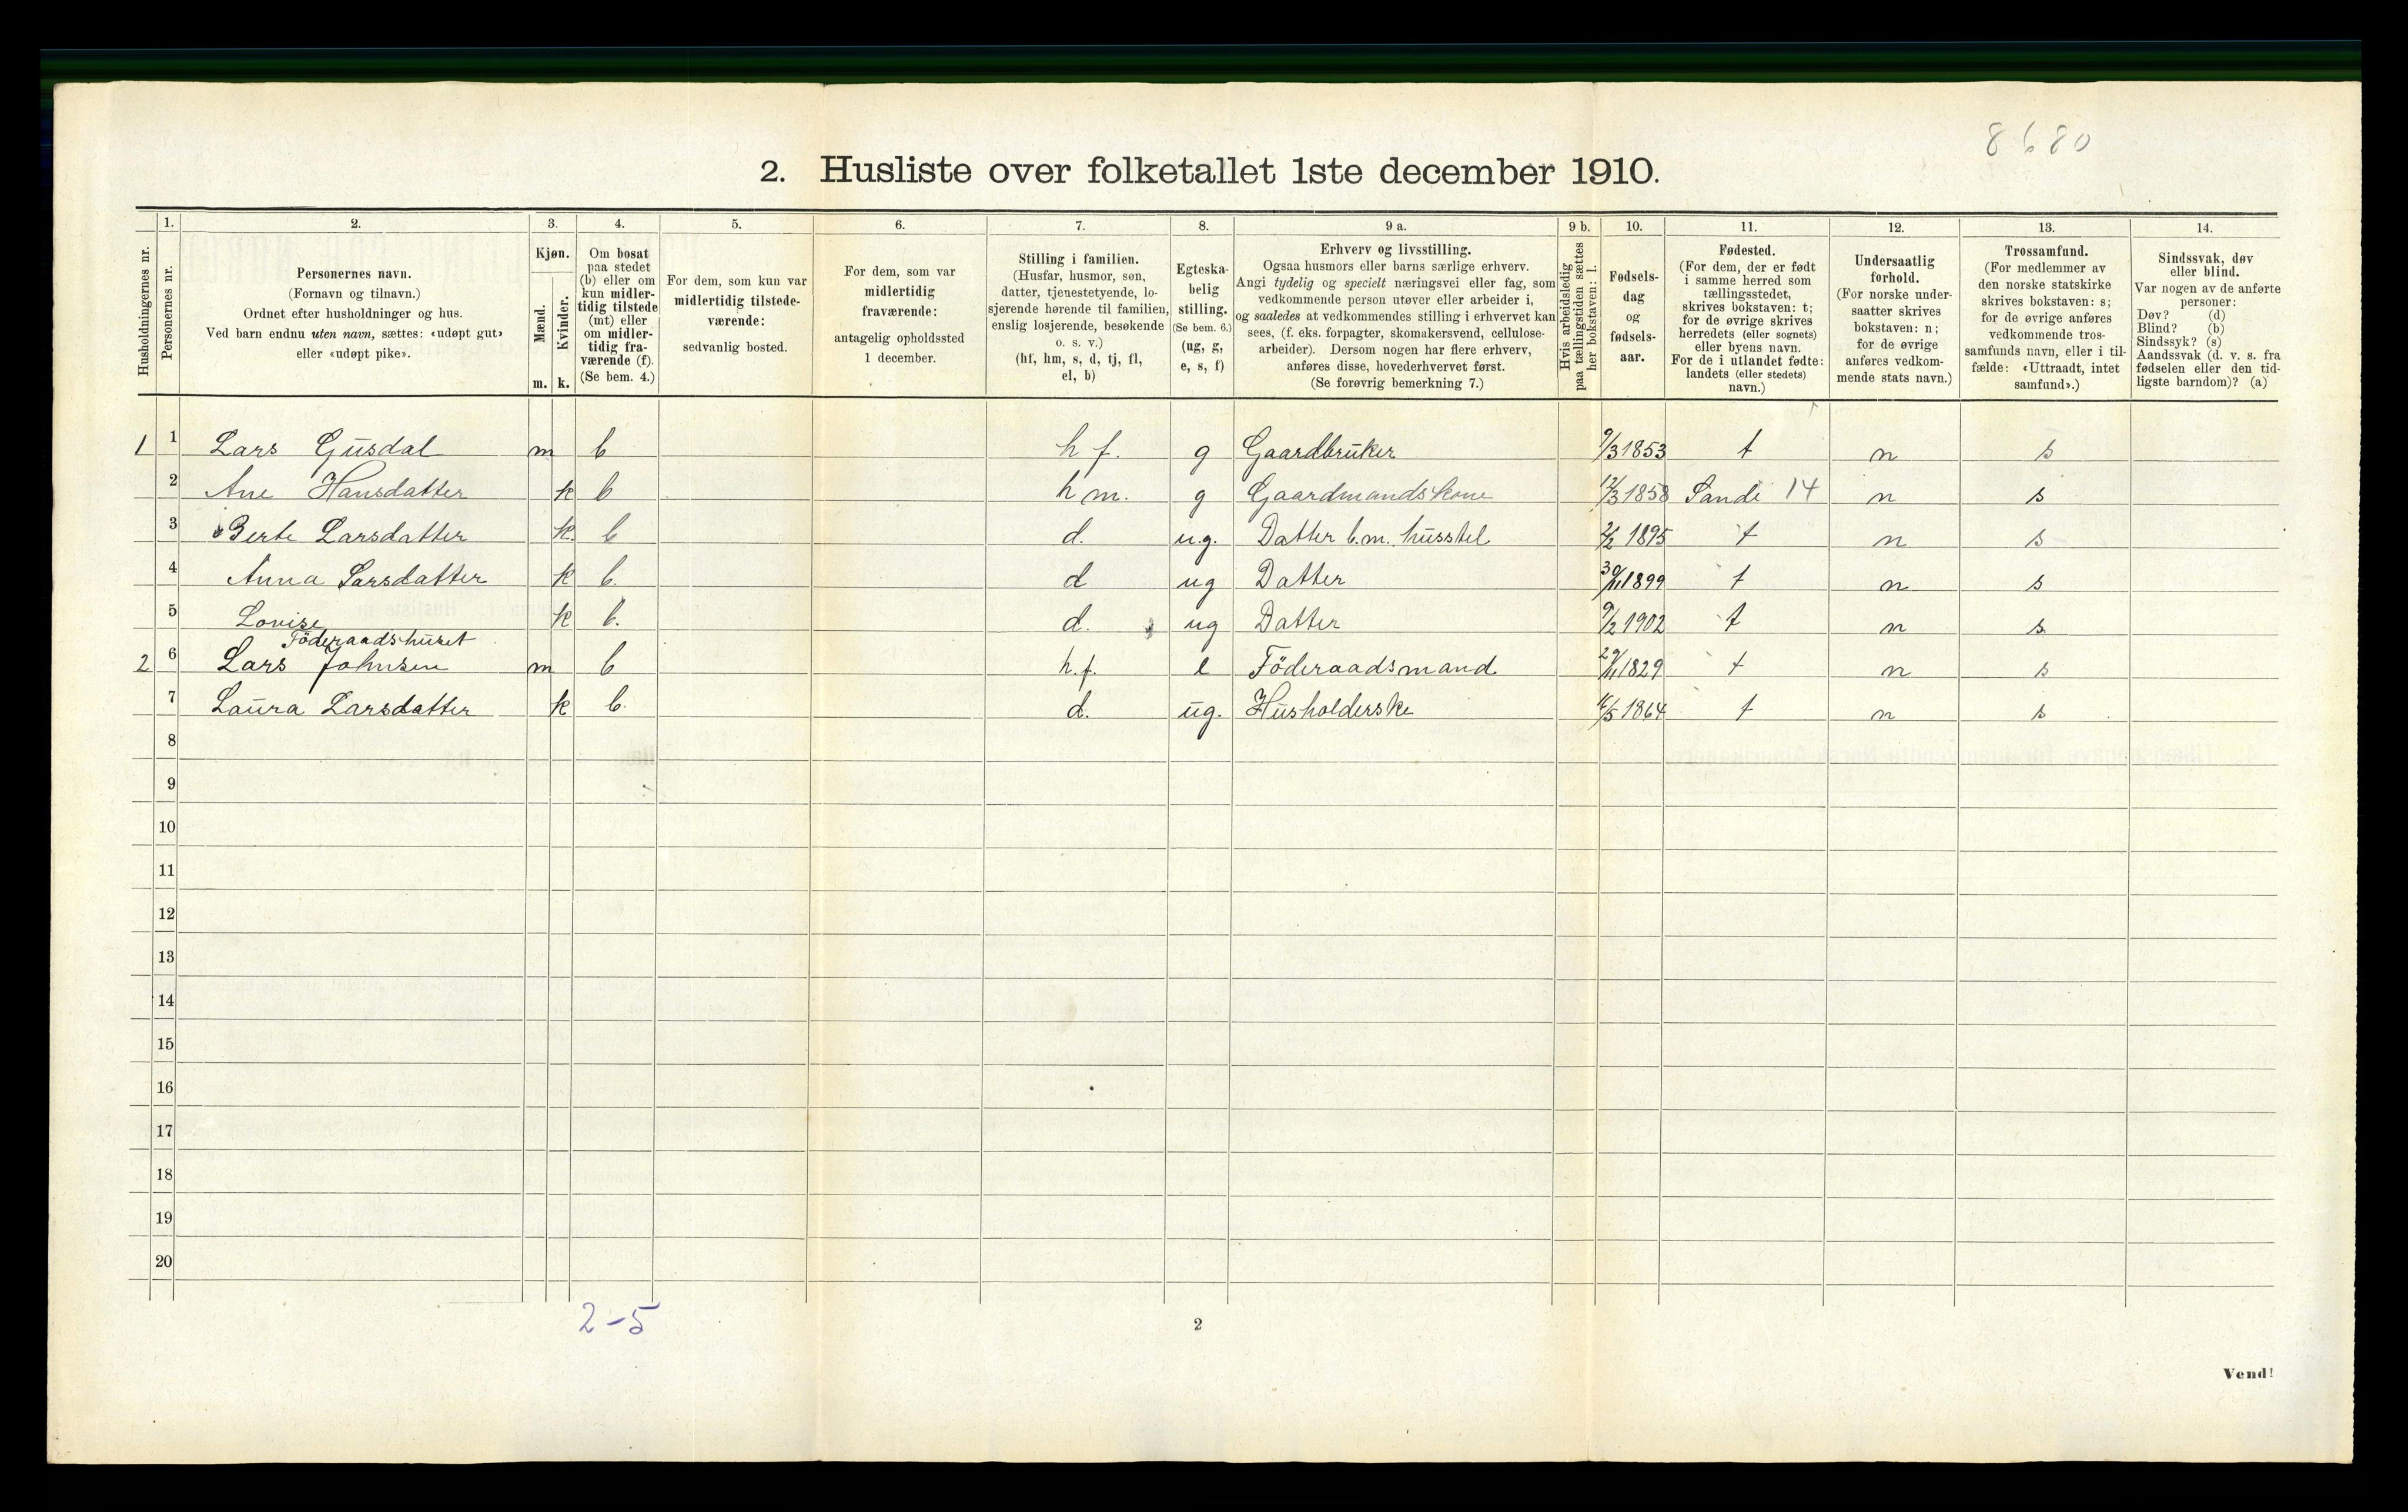 8680
2. Husliste over folketallet 1ste december 1910.
Husholdningernes nr.
1.
Personernes nr.
2.
Personernes navn.
(Fornavn og tilnavn.)
Ordnet efter husholdninger og hus.
Ved barn endnu uten navn, sættes: «udøpt gut»
eller «udøpt pike».
3.
Kjøn.
Mænd.
Kvinder.
m. k.
4.
Om bosat
paa stedet
(b) eller om
kun midler-
tidig tilstede
(mt) eller
om midler-
tidig fra-
værende (f).
(Se bem. 4.)
5.
For dem, som kun var
midlertidig tilstede-
værende:
sedvanlig bosted.
6.
For dem, som var
midlertidig
fraværende:
antagelig opholdssted
1 december.
7.
Stilling i familien.
(Husfar, husmor, søn,
datter, tjenestetyende, lo-
sjerende hørende til familien,
enslig losjerende, besøkende
o. s. v.)
(hf, hm, s, d, tj, fl,
el, b)
8.
Egteska-
belig
stilling.
(Se bem. 6.)
(ug, g,
e, s, f)
9 a.
Erhverv og livsstilling.
Ogsaa husmors eller barns særlige erhverv.
Angi tydelig og specielt næringsvei eller fag, som
vedkommende person utøver eller arbeider i,
og saaledes at vedkommendes stilling i erhvervet kan
sees, (f. eks. forpagter, skomakersvend, cellulose-
arbeider). Dersom nogen har flere erhverv,
anføres disse, hovederhvervet først.
(Se forøvrig bemerkning 7.)
9 b.
Hvis arbeidsledig
paa tællingstiden sættes
her bokstaven: l.
10.
Fødsels-
dag
og
fødsels-
aar.
11.
Fødested.
(For dem, der er født
i samme herred som
tællingsstedet,
skrives bokstaven: t;
for de øvrige skrives
herredets (eller sognets)
eller byens navn.
For de i utlandet fødte:
landets (eller stedets)
navn.)
12.
Undersaatlig
forhold.
(For norske under-
saatter skrives
bokstaven: n;
for de øvrige
anføres vedkom-
mende stats navn.)
13.
Trossamfund.
(For medlemmer av
den norske statskirke
skrives bokstaven: s;
for de øvrige anføres
vedkommende tros-
samfunds navn, eller i til-
fælde: «Uttraadt, intet
samfund».)
14.
Sindssvak, døv
eller blind.
Var nogen av de anførte
personer:
Døv? (d)
Blind? (b)
Sindssyk? (s)
Aandssvak (d. v. s. fra
fødselen eller den tid-
ligste barndom)? (a)
1 1 Lars Gusdal m b h f. g Gaardbruker 9/3 1853 t n s
2 Ane Hansdatter k b h m. g Gaardmandskone 12/3 1858 Sande 14 n s
3 Berte Larsdatter k. b d. u.g. Datter b.m. husstel 2/2 1895 t n s
4 Anna Larsdatter k b. d ug Datter 30/11 1899 t n s
5 Lovise k b. d. ug Datter 9/2 1902 t n s
Föderaadshuset
2 6 Lars Johnsen m b h.f. e Föderaadsmand 29/11 1829 t n s
7 Laura Larsdatter k b. d. ug. Husholderske 1864 t n s
8
9
10
11
12
13
14
15
16
17
18
19
20
2-5
2
Vend!